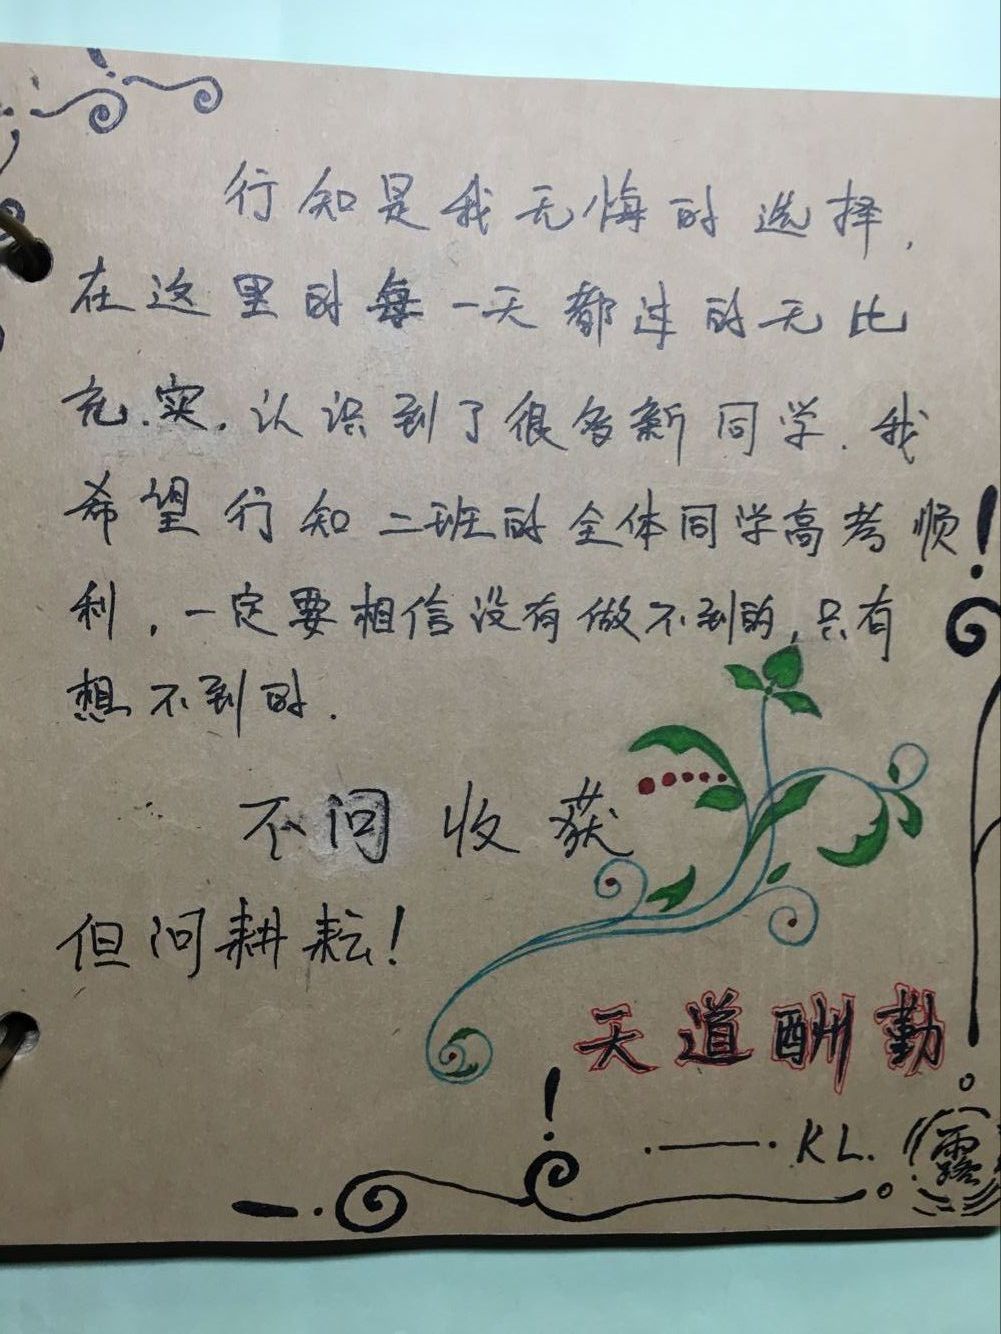 行知是我无悔的选择,
在这里的每一天都过的无比
充实.认识到了很多新同学.我
希望行知二班的全体同学高考顺
利,一定要相信没有做不到的,只有
想不到的.
不问收获
但问耕耘!
天道酬勤
——KL.
露